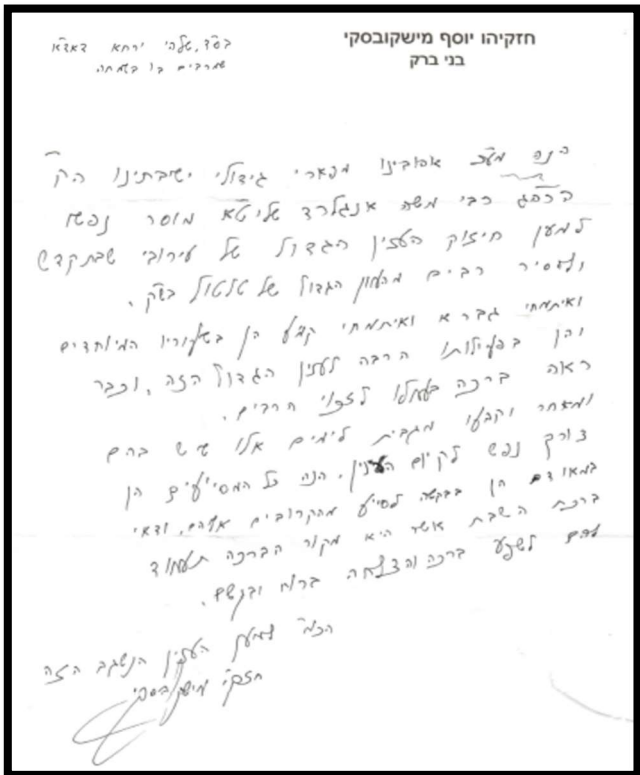 חזקיהו יוסף מישקובסקי
בני ברק
בס"ד, שלהי ירחא דאדא"ר
שמרבים בו בשמחה
הנה מע"כ אהובינו מפארי גידולי ישיבתינו הק'
הרה"ג רבי משה אנגלרד שליט"א מוסר נפשו
למען חיזוק הענין הגדול של עירובי שבתקדש
ולהסיר רבים מהעון הגדול של טלטול בש"ק.
ואיתמחי גברא ואיתמחי קמע הן בשעוריו המיוחדים
והן בפעילותו הרבה לענין הגדול הזה, וכבר
ראה ברכה בעמלו לזכוי הרבים.
ומאחר וקבעו מגבית לימים אלו שיש בהם
צורך נפש לקיום הענין. הנה כל המסייעים הן
במאודם הן בבקשה לסייע מהקרובים אליהם, ודאי
ברכת השבת אשר היא מקור הברכה תעמוד
להם לשפע ברכה והצלחה ברוח ובגשם.
הכו"ח למען הענין הנשגב הזה
חזקי' מישקובסקי